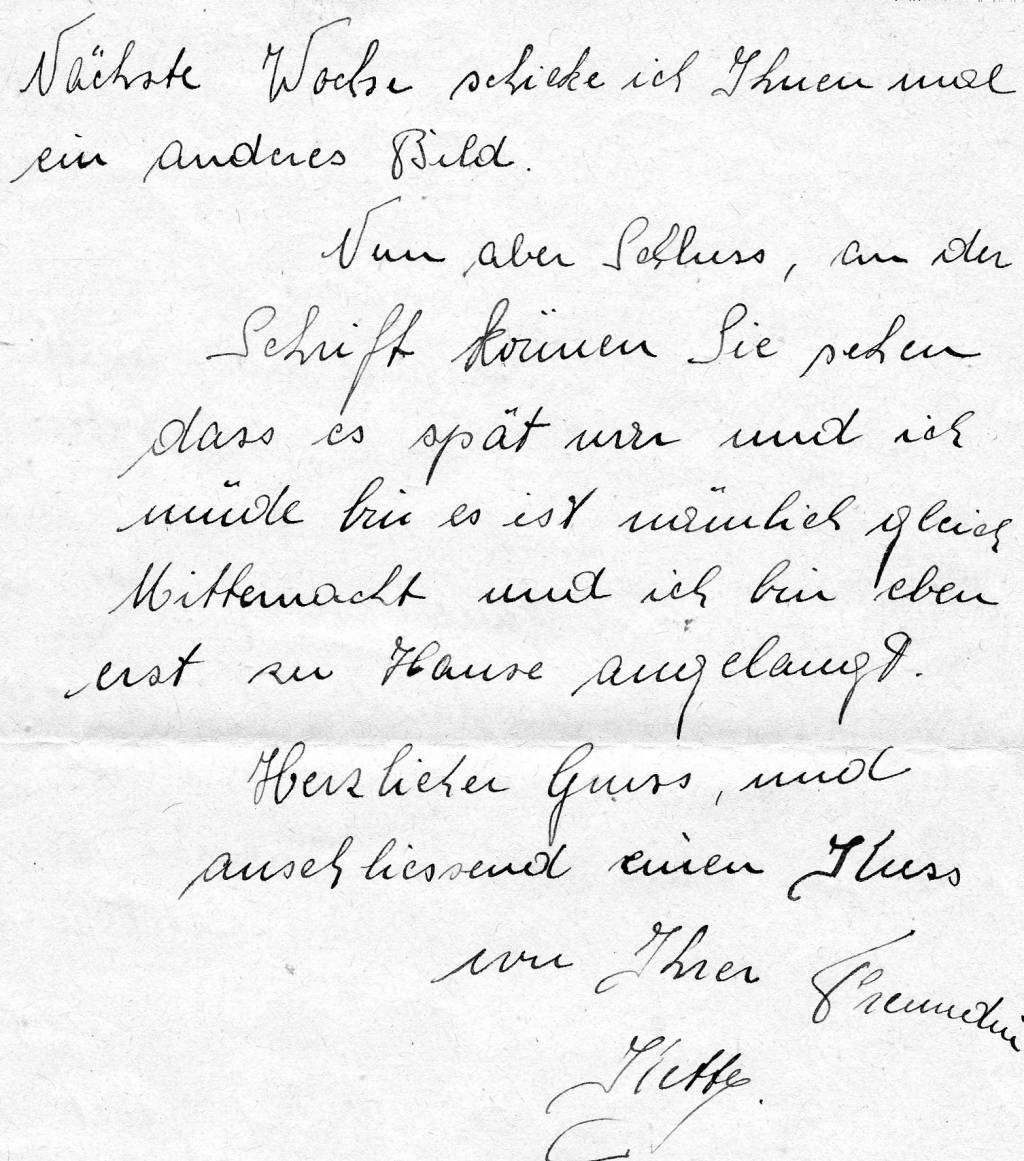 Nächste Woche schicke ich Ihnen mal
ein anderes Bild.
Nun aber Schluss, an der
Schrift können Sie sehen
dass es spät war und ich
müde bin es ist nämlich gleich
Mitternacht und ich bin eben
erst zu Hause angelangt.
Herzlicher Gruss, und
anschliessend einen Kuss
von Ihrer Freundin